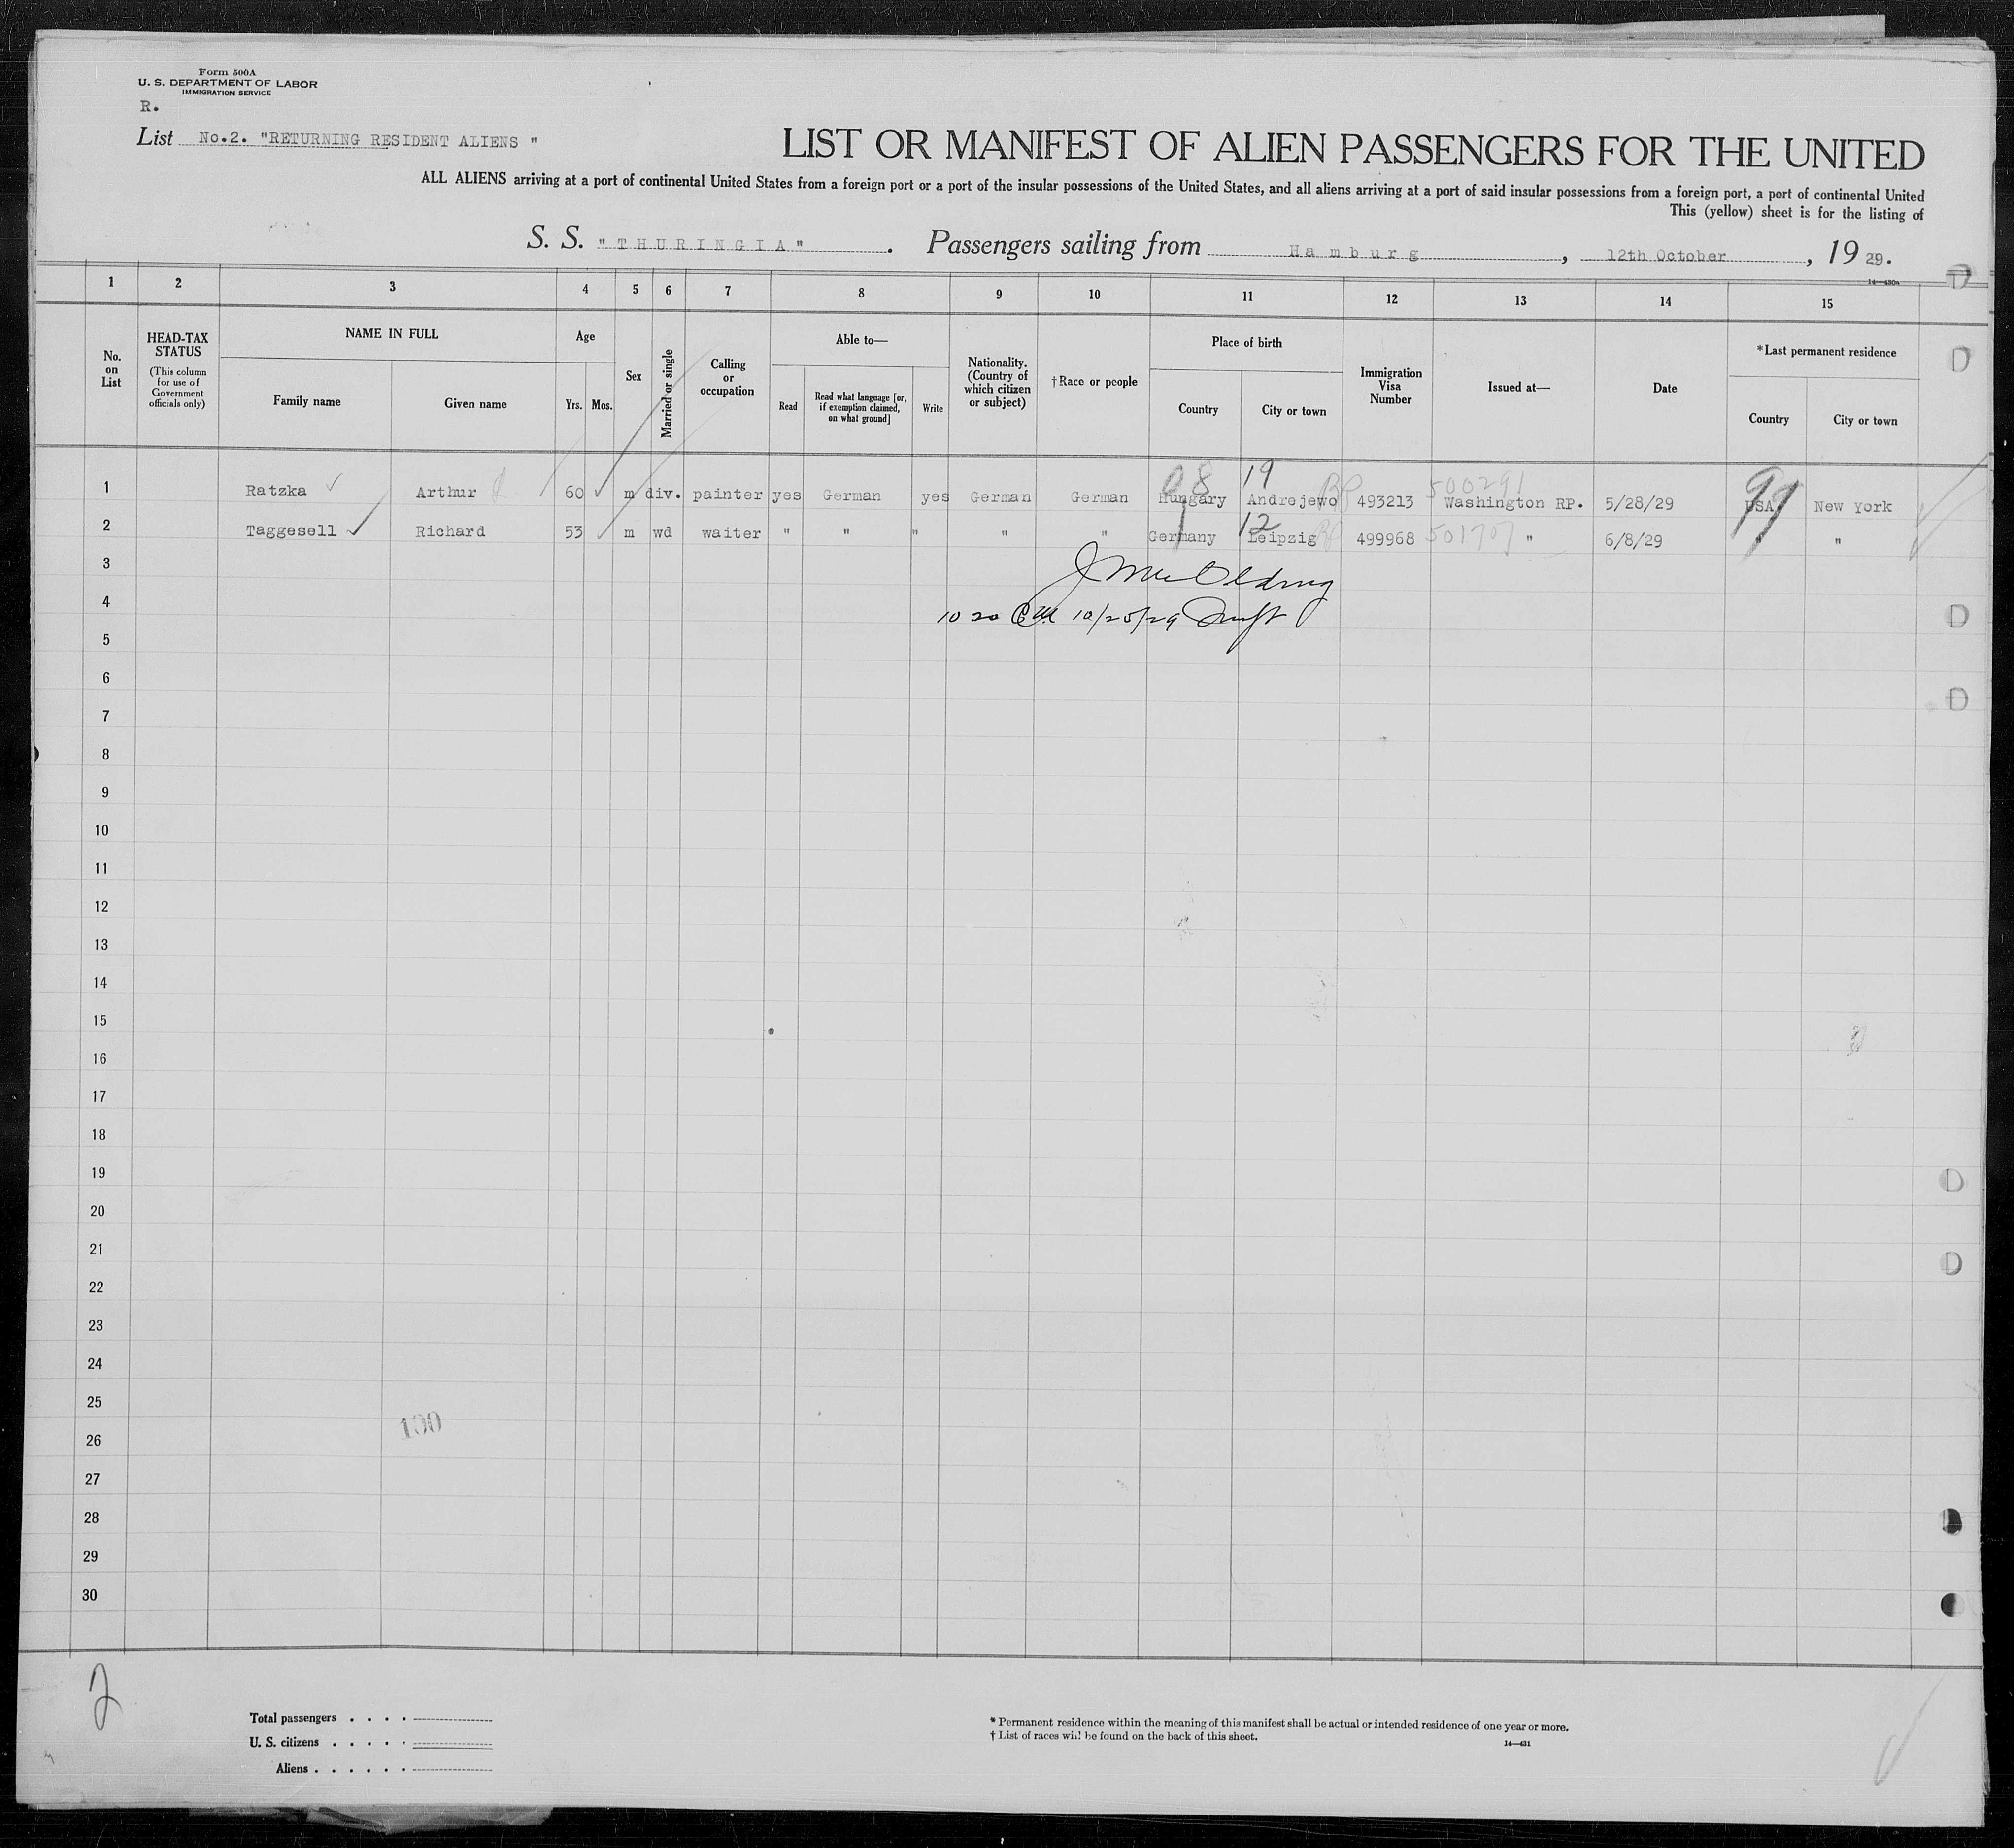 Form 500A
U. S. DEPARTMENT OF LABOR
IMMIGRATION SERVICE
R.
List No.2. "RETURNING RESIDENT ALIENS "
LIST OR MANIFEST OF ALIEN PASSENGERS FOR THE UNITED
ALL ALIENS arriving at a port of continental United States from a foreign port or a port of the insular possessions of the United States, and all aliens arriving at a port of said insular possessions from a foreign port, a port of continental United
This (yellow) sheet is for the listing of
S. S. "THURINGIA". Passengers sailing from Hamburg, 12th October, 1929.
14—430a
1 2 3 4 5 6 7 8 9 10 11 12 13 14 15
No. on List
HEAD-TAX STATUS
(This column for use of Government officials only)
NAME IN FULL
Family name
Given name
Age
Yrs. Mos.
Sex
Married or single
Calling or occupation
Able to—
Read
Read what language [or, if exemption claimed, on what ground]
Write
Nationality. (Country of which citizen or subject)
†Race or people
Place of birth
Country
City or town
Immigration Visa Number
Issued at—
Date
*Last permanent residence
Country
City or town
08 19 500291 99
1 Ratzka Arthur 60 m div. painter yes German yes German German Hungary Andrejewo 493213 Washington RP. 5/28/29 USA. New York
1 12 501707
2 Taggesell Richard 53 m wd waiter " " " " " Germany Leipzig 499968 " 6/8/29 " "
3
4
10 20 10/25/29
5
6
7
8
9
10
11
12
13
14
15
16
17
18
19
20
21
22
23
24
25
100
26
27
28
29
30
2
Total passengers . . . .
U. S. citizens . . . . .
Aliens . . . . . .
* Permanent residence within the meaning of this manifest shall be actual or intended residence of one year or more.
† List of races will be found on the back of this sheet.
14—431